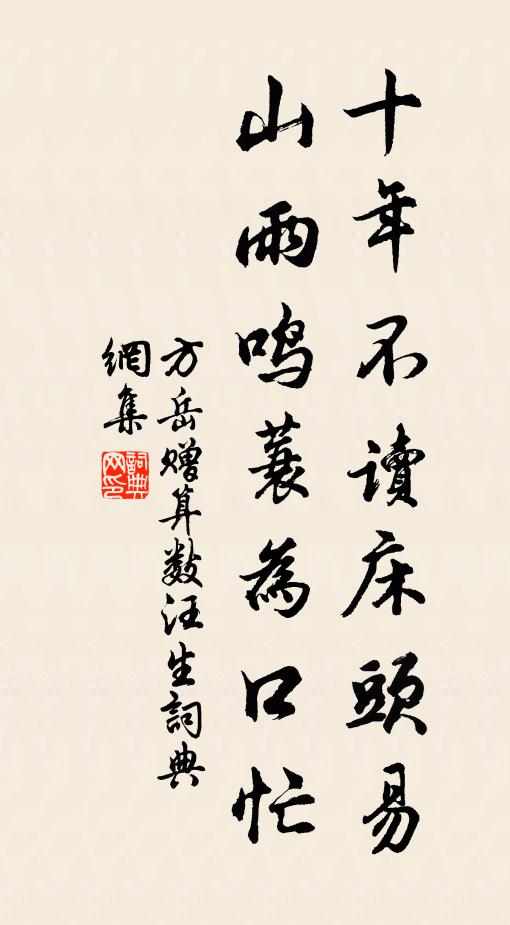 十年不讀床頭易
山雨鳴蓑為口忙
方岳贈算數汪生詞典
網集
詞典網印